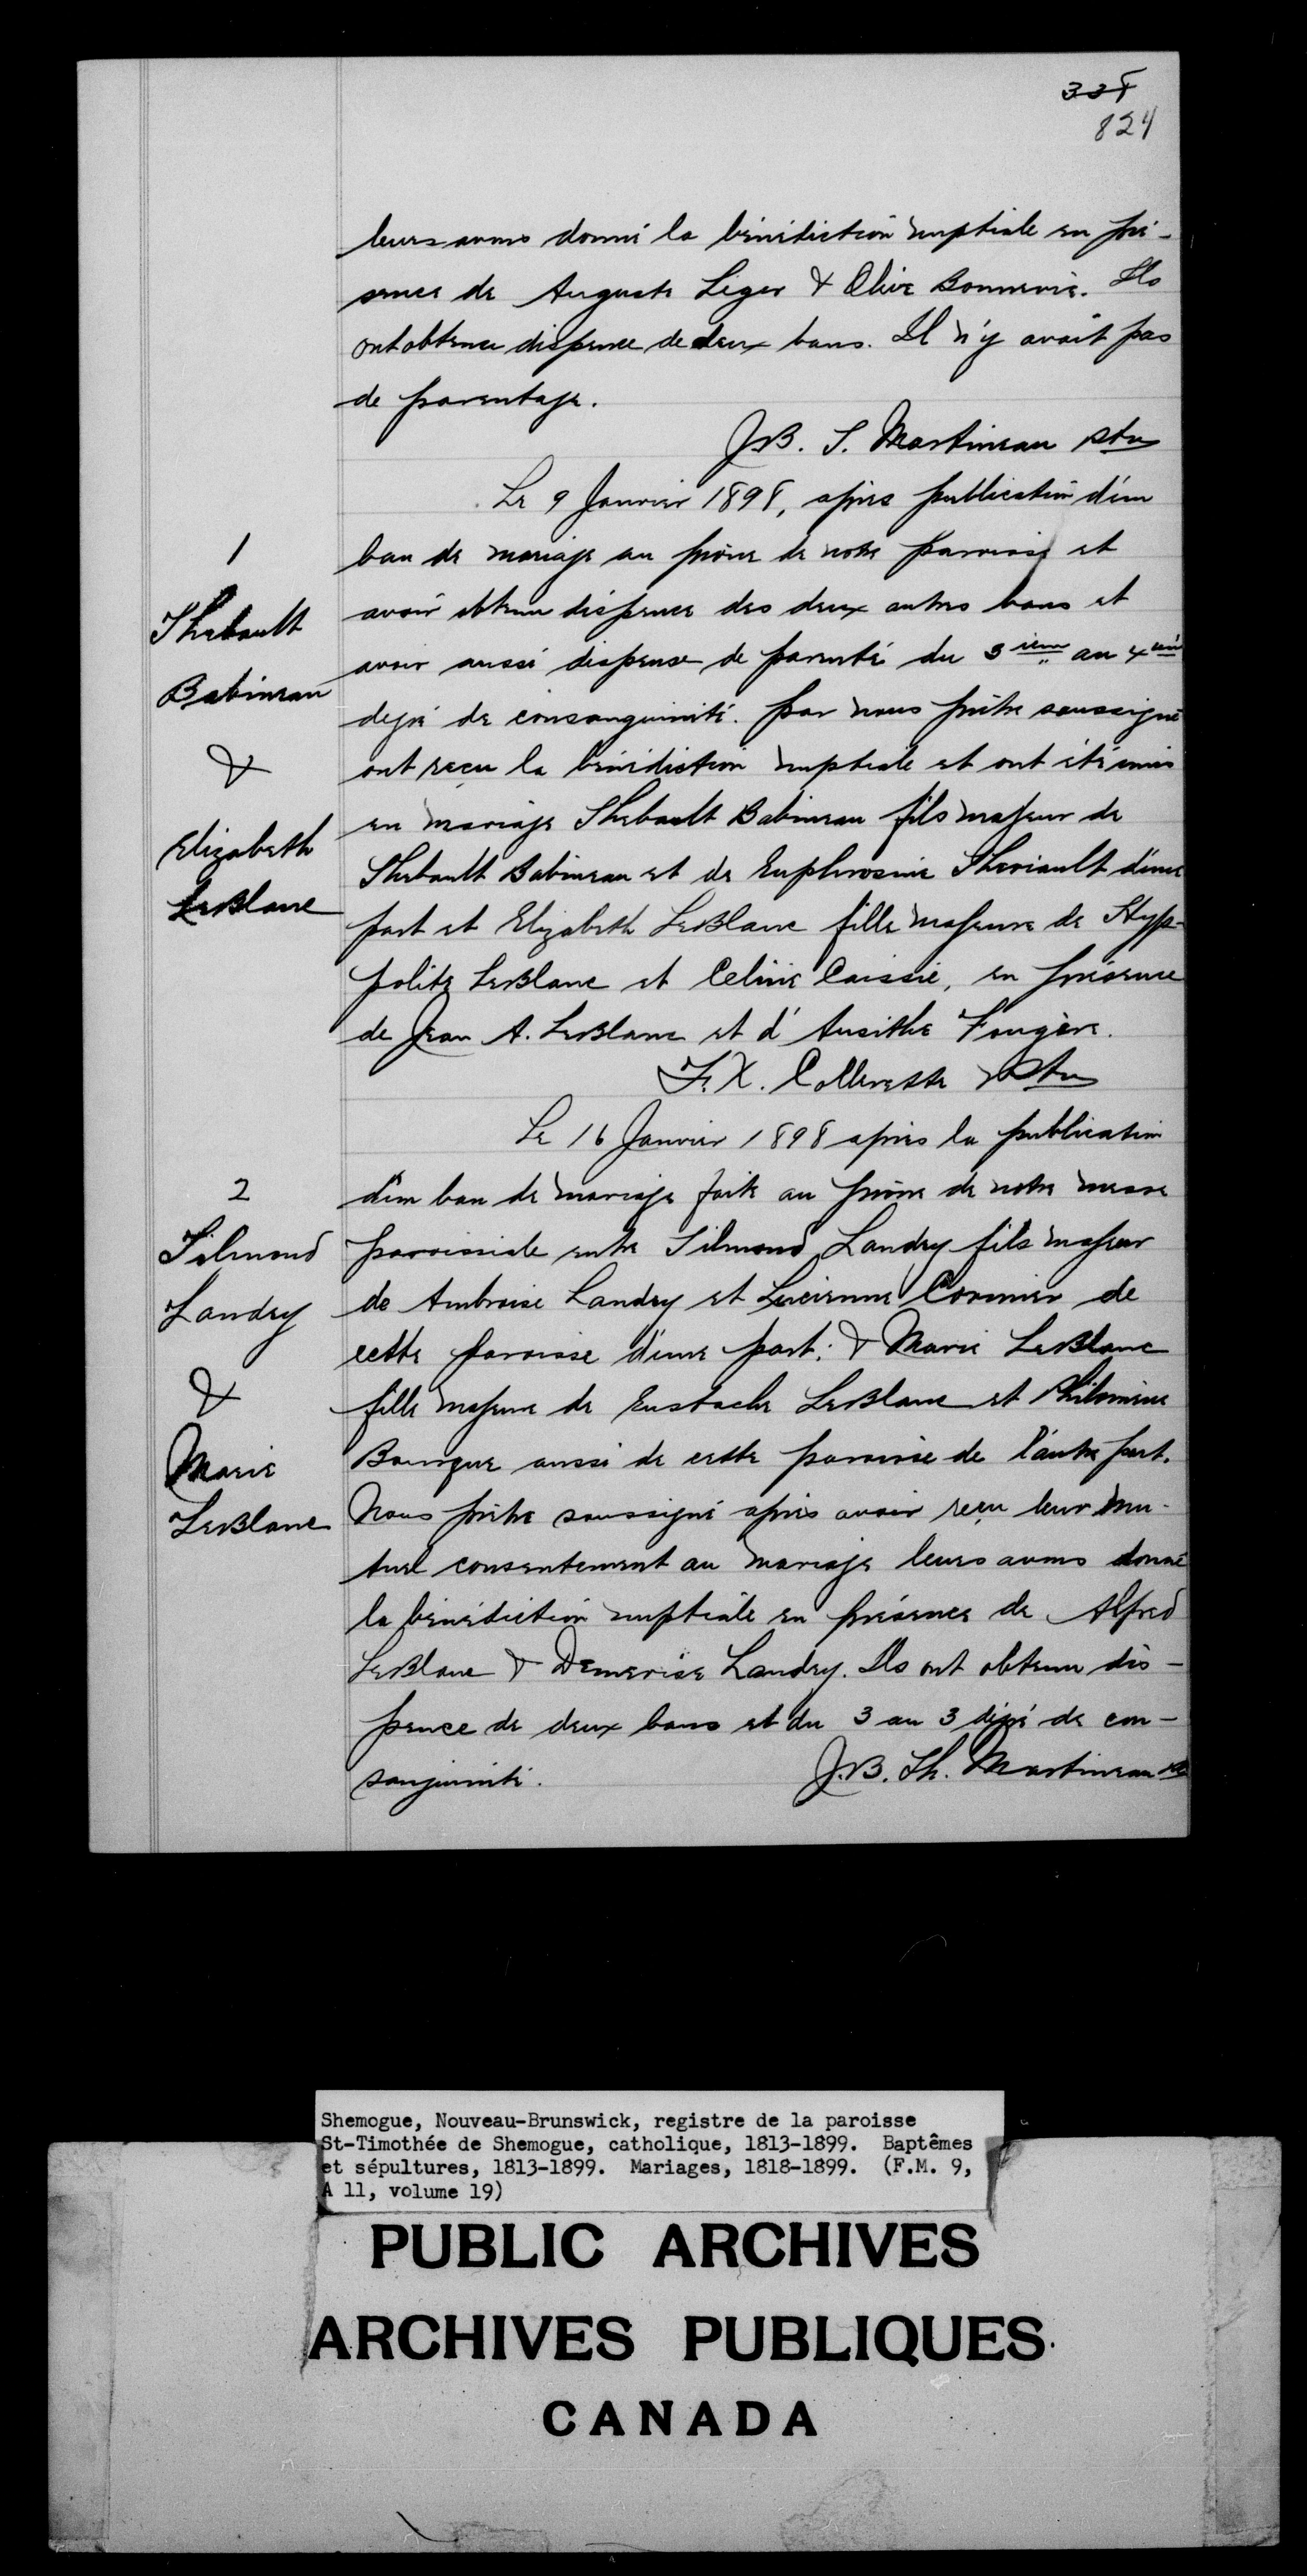 335
824
leurs avons donné la bénédiction nuptiale en pré-
sence de Auguste Leger & Olive Bonnevie. Ils
ont obtenu dispence de deux bans. Il n'y avait pas
de parentage.
J.B. T. Martineau Ptre
Le 9 Janvier 1898, après publication d'un
ban de mariage au prône de notre paroisse et
avoir obtenu dispence des deux autres bans et
avoir aussi dispense de parenté du 3ième au 4ième
degré de consanguinité. par nous prêtre soussigné
ont reçu la bénédiction nuptiale et ont été unis
en mariage Thebault Babineau fils majeur de
Thebault Babineau et de Euphrosine Theriault d'une
part et Elizabeth LeBlanc fille majeure de Hyp-
polite LeBlanc et Celine Caissie, en présence
de Jean A. LeBlanc et d'Ausithe Fougère.
F. X. Collerette Ptre
1
Thebault
Babineau
&
Elizabeth
LeBlanc
Le 16 Janvier 1898 après la publication
d'un ban de mariage faite au prône de notre messe
paroissiale entre Tilmond Landry fils majeur
de Ambroise Landry et Lucienne Cormier de
cette paroisse d'une part: & Marie LeBlanc
fille majeure de Eustache LeBlanc et Philomène
Bourque aussi de cette paroisse de l'autre part.
Nous prêtre soussigné après avoir reçu leur mu-
tuel consentement au mariage leurs avons donné
la bénédiction nuptiale en présence de Alfred
LeBlanc & Demerise Landry. Ils ont obtenu dis-
pence de deux bans et du 3 au 3 degré de con-
sanguinité.
J.B. Th. Martineau Ptre
2
Tilmond
Landry
&
Marie
LeBlanc
Shemogue, Nouveau-Brunswick, registre de la paroisse
St-Timothée de Shemogue, catholique, 1813-1899. Baptêmes
et sépultures, 1813-1899. Mariages, 1818-1899. (F.M. 9,
A 11, volume 19)
PUBLIC ARCHIVES
ARCHIVES PUBLIQUES
CANADA